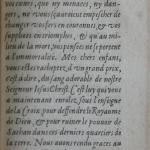 vos cœurs, que ny menaces, ny dan-
ger, ne vous sçauroient empescher de
changer vos fers en couronnes & vos
supplices en triomphes, & qu'au mi-
lieu de la mort, vos pensées ne se portent
à l'immortalité. Mes chers enfans,
vous estes rachetez d'un grand prix,
c'est à dire, du sang adorable de nostre
Seigneur Iesus Christ. C'est luy qui vous
a maintenant enrolez, sous l'enseigne
de la Croix, pour deffendre le Royaume
de Dieu, & pour ruiner le pouuoir de
Sathan dans ces derniers quartiers de
la terre. Nous auons rendu graces au